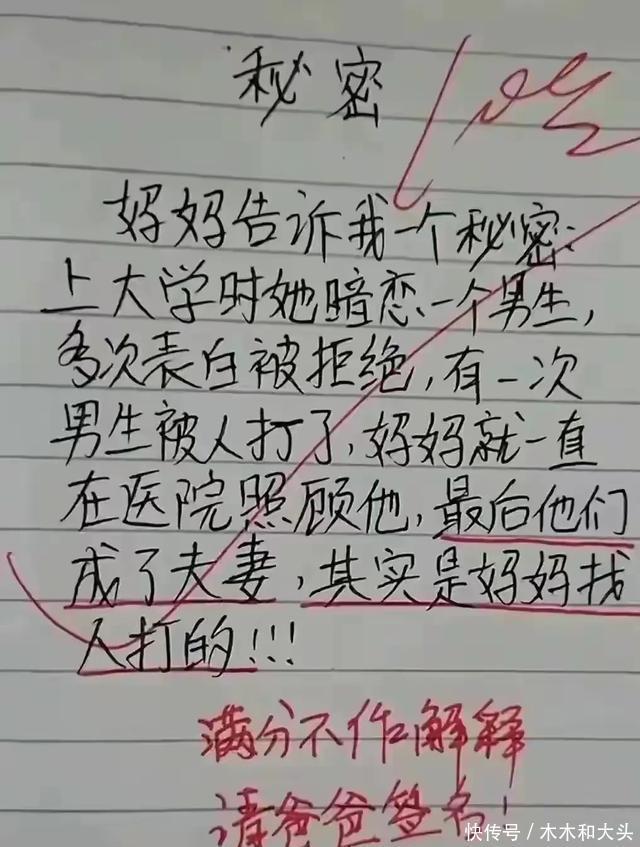 秘密
妈妈告诉我一个秘密:
上大学时她暗恋一个男生,
多次表白被拒绝,有一次
男生被人打了,妈妈就一直
在医院照顾他,最后他们
成了夫妻,其实是妈妈找
人打的!!!
满分不作解释
请爸爸签名!
快传号/木木和大头